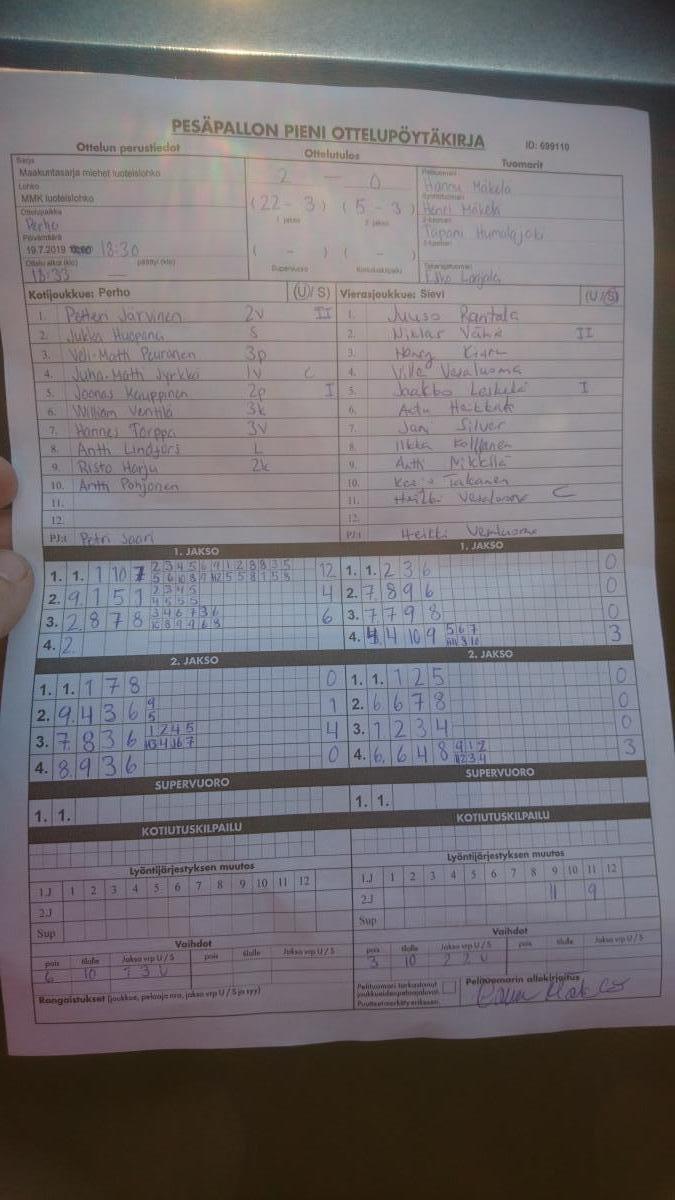 PESÄPALLON PIENI OTTELUPÖYTÄKIRJA
ID: 699110
Ottelun perustiedot
Ottelutulos
Tuomarit
Sarja
Maakuntasarja miehet luoteislohko
Lohko
MMK luoteislohko
Ottelupaikka
Perho
Päivämäärä
19.7.2019 18:30
Ottelu alkoi (klo) päättyi (klo)
18:33 —
2 — 0
(22 - 3) (5 - 3)
1. jakso 2. jakso
( - ) ( - )
Supervuoro Kotiutuskilpailu
Pelituomari
Hannu Mäkelä
Henri Mäkelä
Tapani Humalajoki
Takarajatuomari
Kotijoukkue: Perho (U/S)
1. Petteri Järvinen 2v II
2. Jukka Huopana S
3. Veli-Matti Peuranen 3p
4. Juha-Matti Jyrkkä 1v C
5. Joonas Kauppinen 2p I
6. William Ventilä 3k
7. Hannes Torppa 3v
8. Antti Lindfors L
9. Risto Harju 2k
10. Antti Pohjonen
11.
12.
PJ:t Petri Saari
Vierasjoukkue: Sievi (U/S)
1. Juuso Rantala
2. Niklas Vähä II
3. Henry
4. Ville Vesaluoma
5. Jaakko Leskelä I
6. Heikkilä
7. Jani Silver
8. Ilkka
9. Antti Mikkilä
10.
11. Heikki Vesaluoma C
12.
PJ:t Heikki
1. JAKSO
1. 1. 1 10 7 12
2. 9 1 5 1 2 3 4 5 4
4 5 5 5
3. 2 8 7 8 3 4 6 7 3 6 6
10 8 9 9 6 8
4. 2
1. JAKSO
1. 1. 2 3 6 0
2. 7 8 9 6 0
3. 7 7 9 8 0
4. 4 4 10 9 5 6 7 3
2. JAKSO
1. 1. 1 7 8 0
2. 9 4 3 6 9 1
5
3. 7 8 3 6 1 2 4 5 4
4. 8 9 3 6 0
2. JAKSO
1. 1. 1 2 5 0
2. 6 6 7 8 0
3. 1 2 3 4 0
4. 6 6 4 8 3
SUPERVUORO
1. 1.
SUPERVUORO
1. 1.
KOTIUTUSKILPAILU
KOTIUTUSKILPAILU
Lyöntijärjestyksen muutos
1.J 1 2 3 4 5 6 7 8 9 10 11 12
2.J
Sup
Lyöntijärjestyksen muutos
1.J 1 2 3 4 5 6 7 8 9 10 11 12
2.J 11 9
Sup
Vaihdot
pois tilalle Jakso vrp U / S pois tilalle Jakso vrp U / S
6 10 3 U
Vaihdot
pois tilalle Jakso vrp U / S pois tilalle Jakso vrp U / S
3 10 2 2 U
Rangaistukset (joukkue, pelaaja nro, jakso vrp U / S ja syy)
Pelituomari tarkastanut
joukkueiden pelaajaluvat.
Puutteet merkitty erikseen.
Pelituomarin allekirjoitus